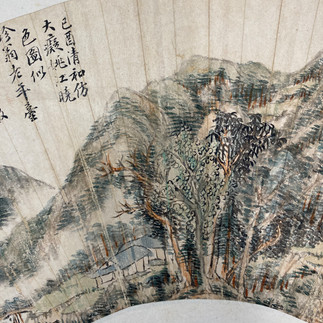 己酉清和仿
大癡姚江曉
色圖似
翁老年臺